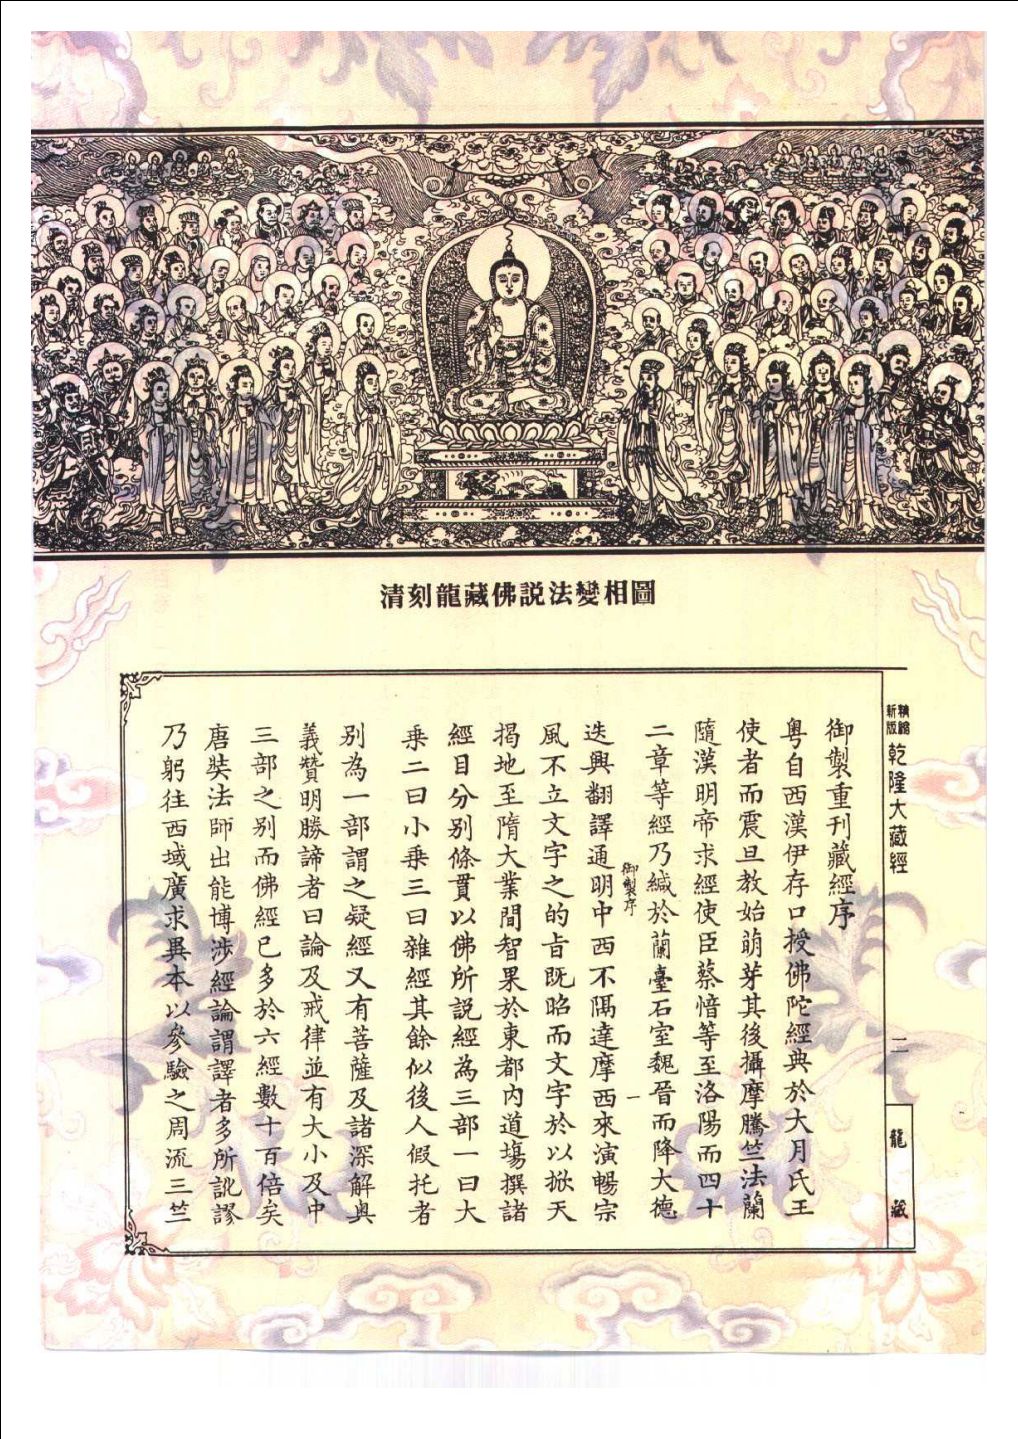 清刻龍藏佛説法變相圖
新版
精縮
乾隆大藏經
二
龍藏
御製重刊藏經序
粤自西漢伊存口授佛陀經典於大月氏王
使者而震旦教始萌芽其後攝摩騰竺法蘭
隨漢明帝求經使臣蔡愔等至洛陽而四十
二章等經乃緘於蘭臺石室魏晉而降大德
御製序
一
迭興翻譯通明中西不隔達摩西來演暢宗
風不立文字之的旨既昭而文字於以掀天
揭地至隋大業間智果於東都内道場撰諸
經目分別條貫以佛所説經為三部一曰大
乗二曰小乗三曰雜經其餘似後人假托者
别為一部謂之疑經又有菩薩及諸深解奥
義贊明勝諦者曰論及戒律並有大小及中
三部之别而佛經已多於六經數十百倍矣
唐奘法師出能博涉經論謂譯者多所訛謬
乃躬往西域廣求異本以參驗之周流三竺